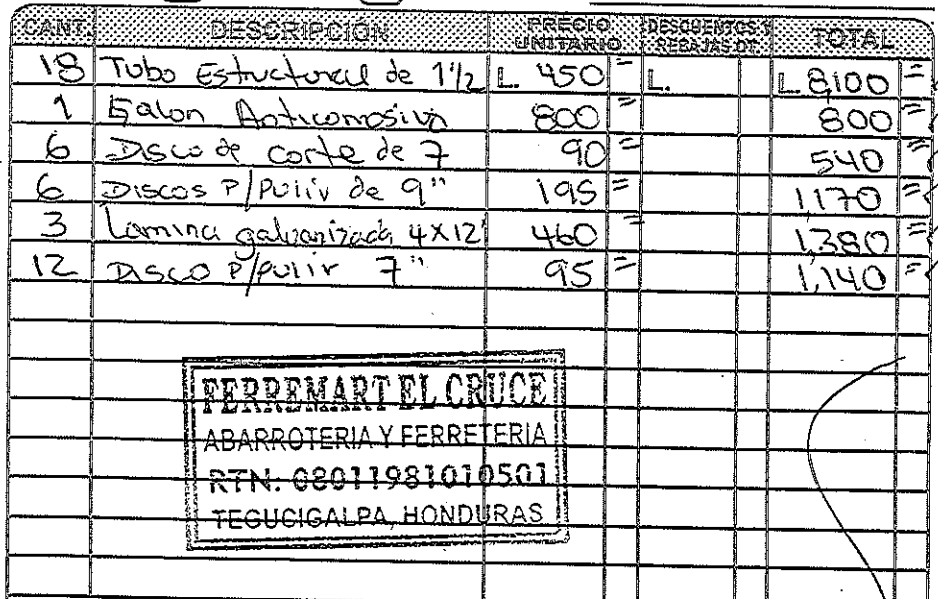 CANT. DESCRIPCIÓN PRECIO UNITARIO DESCUENTOS Y REBAJAS OT. TOTAL
18 Tubo Estructural de 1½ L. 450= L. L 8,100=
1 Galon Anticorrosivo 800= 800=
6 Disco de corte de 7 90= 540=
6 Discos P/pulir de 9" 195= 1170=
3 Lamina galvanizada 4X12' 460= 1,380=
12 Disco P/pulir 7" 95= 1,140=
FERREMART EL CRUCE
ABARROTERIA Y FERRETERIA
RTN: 08011981010501
TEGUCIGALPA, HONDURAS